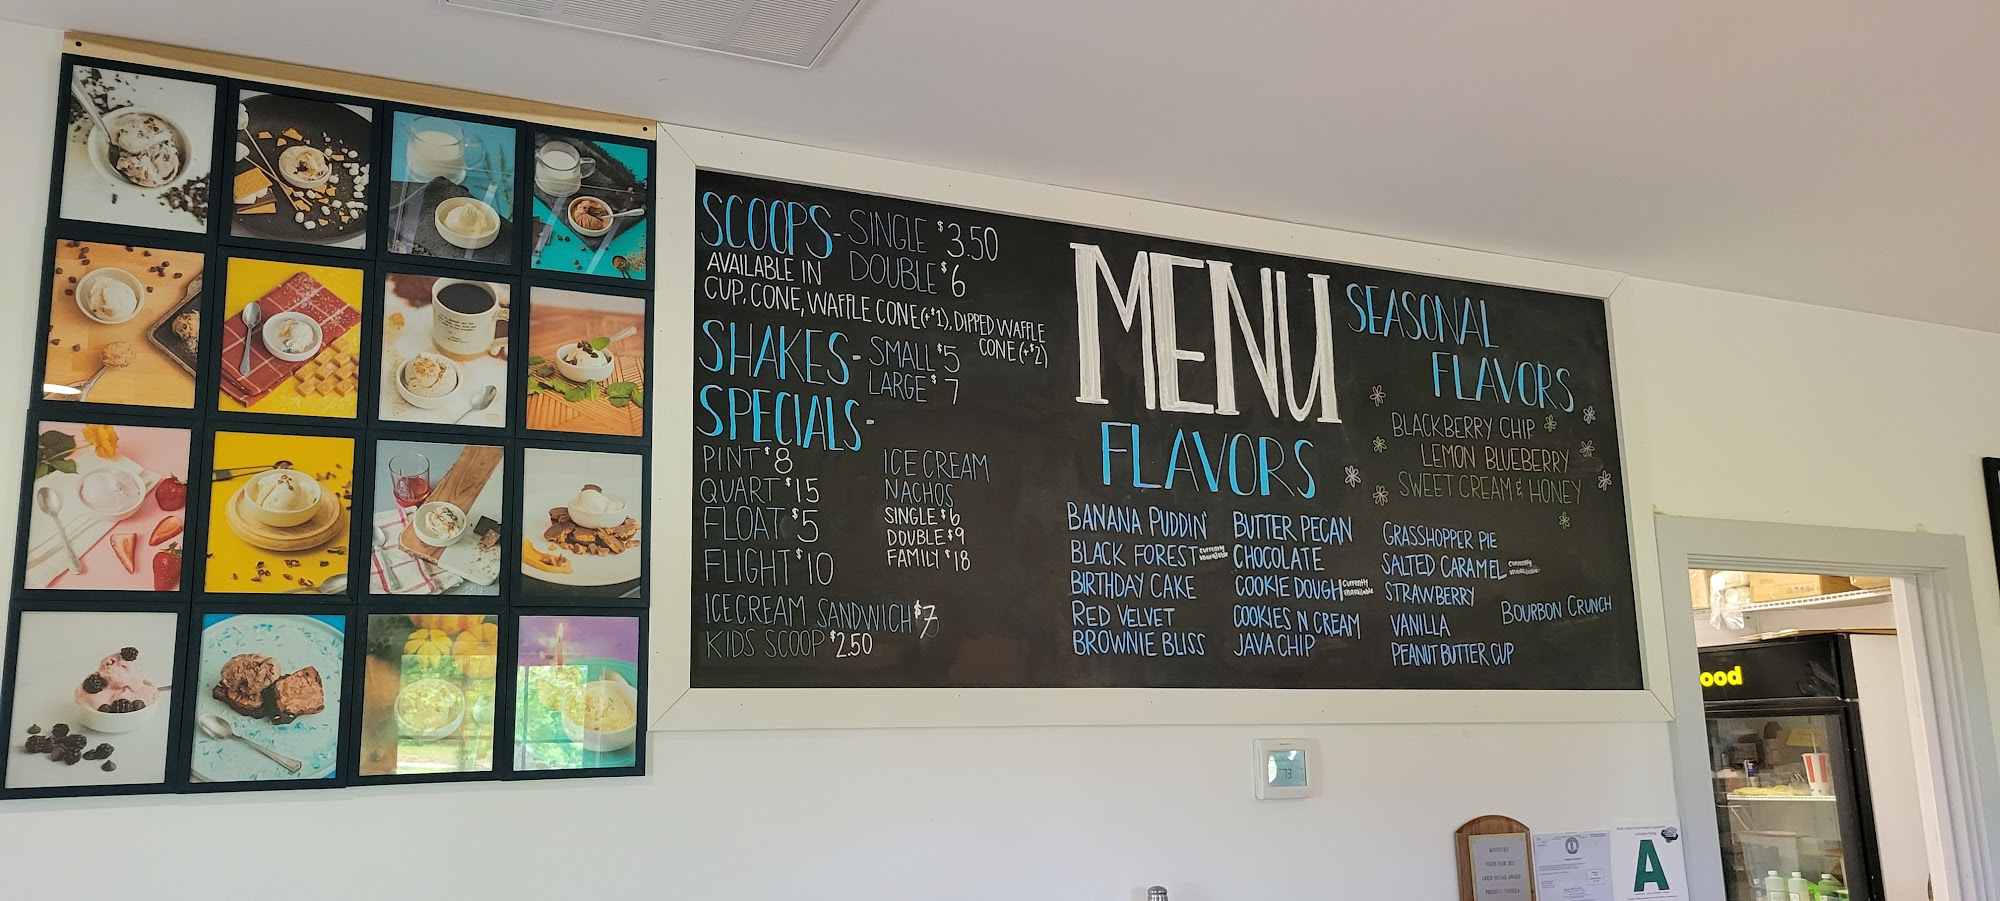 SCOOPS- SINGLE $3.50
AVAILABLE IN DOUBLE $6
CUP, CONE, WAFFLE CONE (+$1), DIPPED WAFFLE
CONE (+$2)
SHAKES- SMALL $5
LARGE $7
SPECIALS-
PINT $8
QUART $15
FLOAT $5
FLIGHT $10
ICE CREAM
NACHOS
SINGLE $6
DOUBLE $9
FAMILY $18
ICECREAM SANDWICH $7
KIDS SCOOP $2.50
MENU
FLAVORS
BANANA PUDDIN'
BLACK FOREST currently unavailable
BIRTHDAY CAKE
RED VELVET
BROWNIE BLISS
BUTTER PECAN
CHOCOLATE
COOKIE DOUGH currently unavailable
COOKIES N CREAM
JAVA CHIP
GRASSHOPPER PIE
SALTED CARAMEL currently unavailable
STRAWBERRY
VANILLA
PEANUT BUTTER CUP
BOURBON CRUNCH
SEASONAL
FLAVORS
BLACKBERRY CHIP
LEMON BLUEBERRY
SWEET CREAM & HONEY
ood
73
A